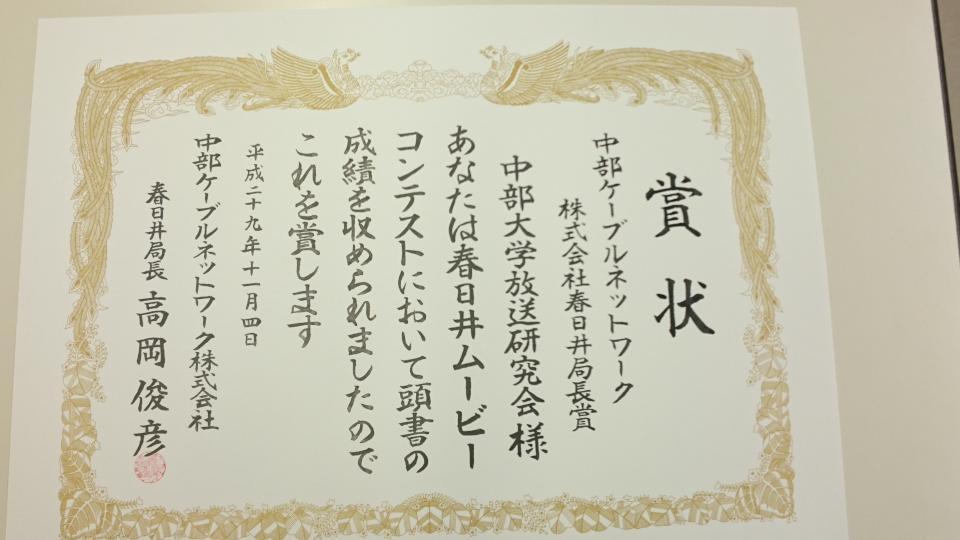 賞状
中部ケーブルネットワーク
株式会社春日井局長賞
中部大学放送研究会様
あなたは春日井ムービー
コンテストにおいて頭書の
成績を収められましたので
これを賞します
平成二十九年十一月四日
中部ケーブルネットワーク株式会社
春日井局長 高岡俊彦